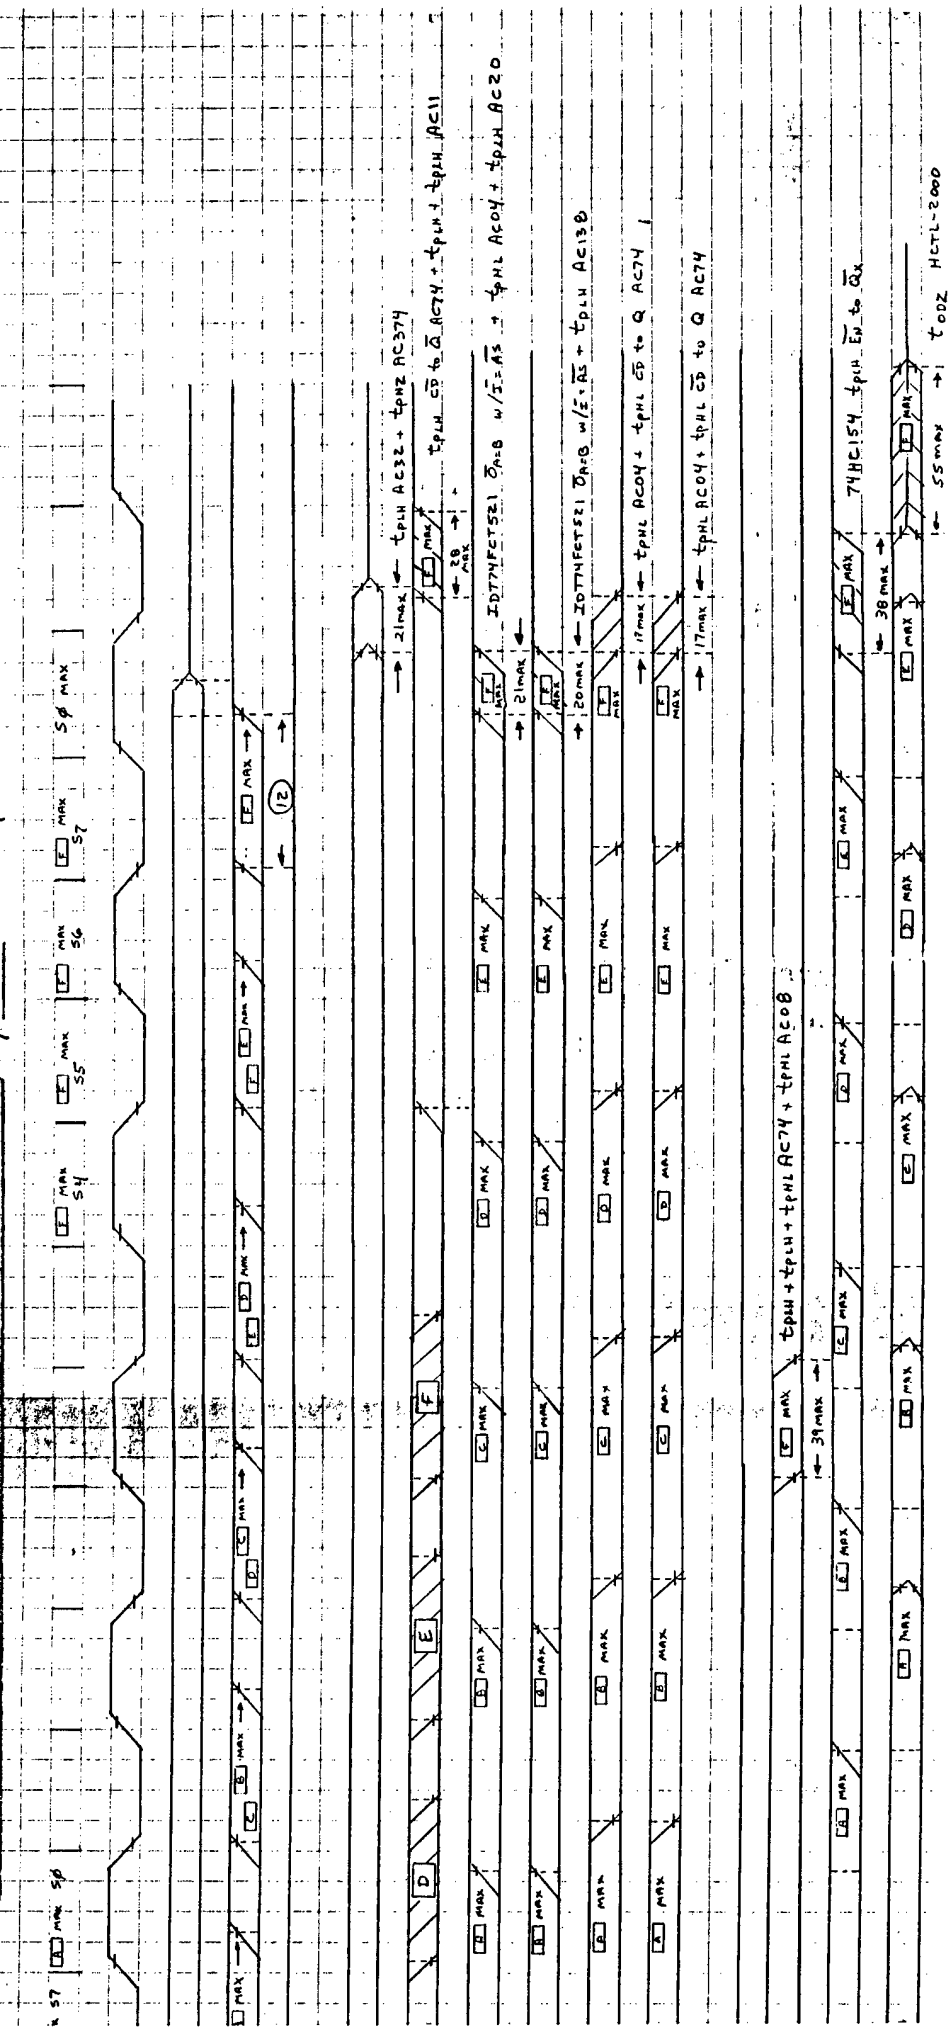 S7 | A MAX SØ
F MAX S4
F MAX S5
F MAX S6
F MAX S7
SØ MAX
MAX →
B MAX →
C
C MAX →
D
D MAX →
E
E MAX →
F
F MAX →
12
21 MAX tPLH AC32 + tPHZ AC374
D
E
F
F MAX
28 MAX
tPLH CD to Q AC74 + tPLH + tPLH AC11
A MAX
B MAX
C MAX
D MAX
E MAX
F MAX
21 MAX
IDT74FCT521 OA=B W/I=AS + tPHL AC04 + tPLH AC20
A MAX
B MAX
C MAX
D MAX
E MAX
F MAX
20 MAX
IDT74FCT521 OA=B W/I=AS + tPLH AC138
A MAX
B MAX
C MAX
D MAX
E MAX
F MAX
17 MAX tPHL AC04 + tPHL CD to Q AC74
A MAX
B MAX
C MAX
D MAX
E MAX
F MAX
17 MAX tPHL AC04 + tPHL CD to Q AC74
F MAX
39 MAX
tPLH + tPLH + tPHL AC74 + tPHL AC08
A MAX
B MAX
C MAX
D MAX
E MAX
F MAX
38 MAX
74HC154 tPLH EN to QX
A MAX
B MAX
C MAX
D MAX
E MAX
F MAX
55 MAX tODZ HCTL-2000